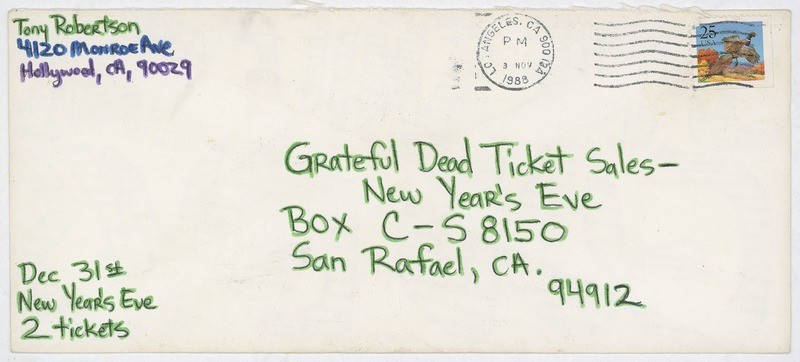 Tony Robertson
4120 Monroe Ave
Hollywood, CA, 90029
LOS ANGELES, CA 900
PM
3 NOV
1988
25
USA
Grateful Dead Ticket Sales-
New Year's Eve
Box C-S 8150
San Rafael, CA.
94912
Dec 31st
New Year's Eve
2 tickets